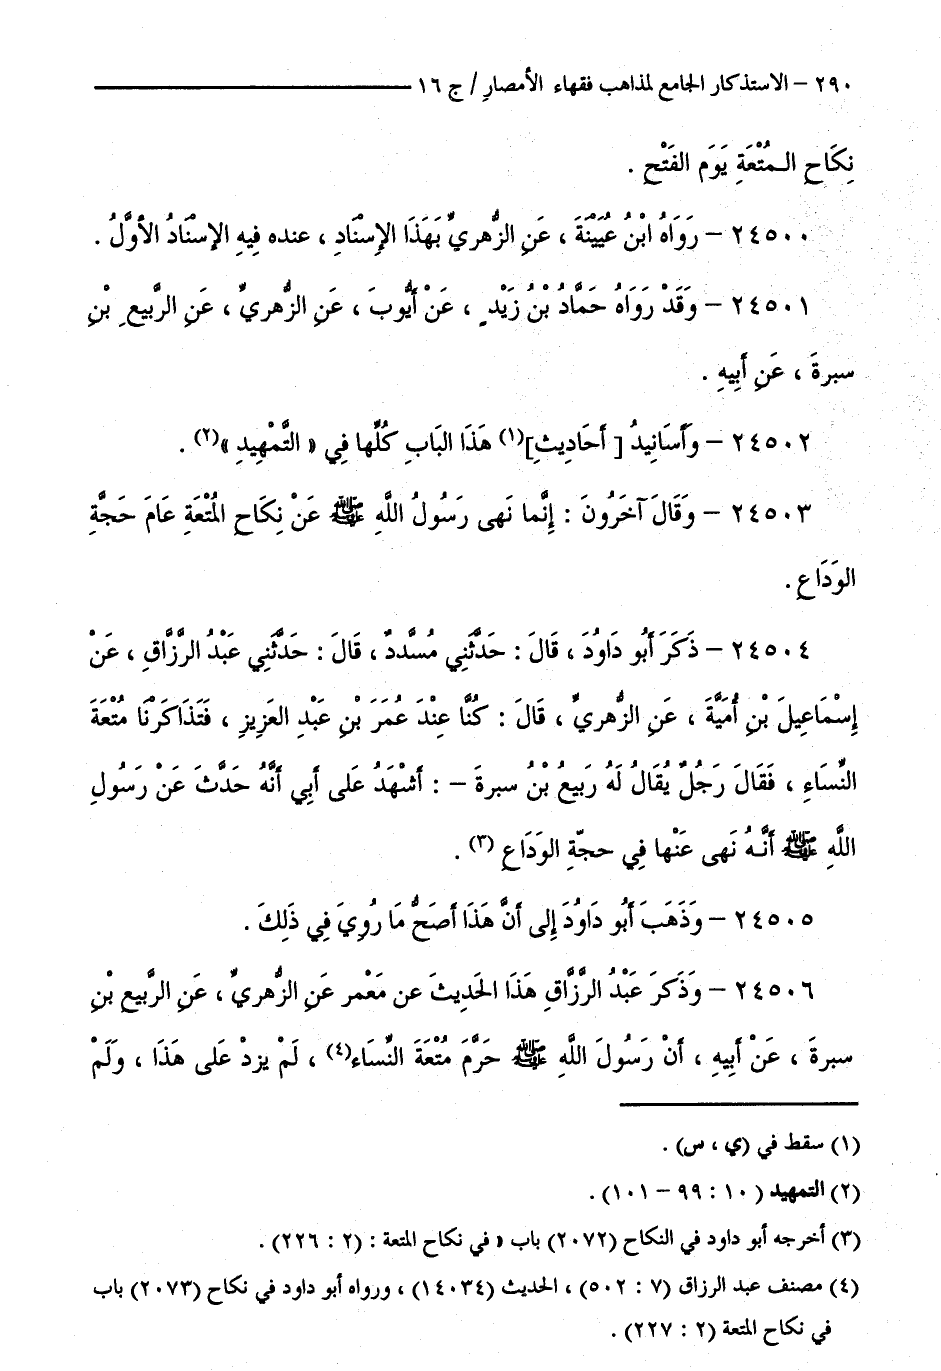 ٢٩٠ – الاستذكار الجامع لمذاهب فقهاء الأمصارِ / ج ١٦
نِكَاحِ المُتْعَةِ يَوَم الفَتْحِ .
٢٤٥٠٠ – رَوَاهُ ابْنُ عُيَيْنَةَ ، عَنِ الزُّهريِّ بَهَذَا الإِسنَادِ ، عنده فِيهِ الإِسنَادُ الأوَّلُ .
٢٤٥٠١ – وَقَدْ رَوَاهُ حَمَّادُ بْنُ زَيْدٍ ، عَنْ أَيُّوبَ ، عَنِ الزُّهريِّ ، عَنِ الرَّبيعِ بْنِ
سبرةَ ، عَنِ أَبِيهِ .
٢٤٥٠٢ – وَأَسَانِيدُ [ أحَادِيثِ](١) هَذَا البَابِ كُلُّها فِي « التَّمْهِيدِ »(٢) .
٢٤٥٠٣ – وَقَالَ آخَرُونَ : إِنَّما نَهى رَسُولُ اللَّهِ ﷺ عَنْ نِكَاحِ المُتْعَةِ عَامَ حَجَّةِ
الوَدَاعِ .
٢٤٥٠٤ – ذَكَرَ أَبُو دَاوُدَ ، قَالَ : حَدَّثَنِي مُسَّددٌ ، قَالَ : حَدَّثَنِي عَبْدُ الرَّزَّاقِ ، عَنْ
إِسْمَاعِيلَ بْنِ أُمَيَّةَ ، عَنِ الزُّهريِّ ، قَالَ : كُنَّا عِندَ عُمَرَ بْنِ عَبْدِ العَزِيزِ ، فَتَذَاكَرْنَا مُتْعَةَ
النِّسَاءِ ، فَقَالَ رَجُلٌ يُقَالُ لَهُ رَبيعُ بْنُ سبرةَ – : أشْهَدُ عَلى أَبِي أنَّهُ حَدَّثَ عَنْ رَسُولِ
اللَّهِ ﷺ أنَّهُ نَهى عَنْها فِي حجَّةِ الوَدَاعِ (٣) .
٢٤٥٠٥ – وَذَهَبَ أَبُو دَاوُدَ إِلى أنَّ هَذَا أصَحُّ مَا رُوِيَ فِي ذَلِكَ .
٢٤٥٠٦ – وَذَكَرَ عَبْدُ الرَّزَّاقِ هَذَا الحَدِيثَ عن مَعْمر عَنِ الزُّهريِّ ، عَنِ الرَّبيعِ بْنِ
سبرةَ ، عَنْ أَبِيهِ ، أَنْ رَسُولَ اللَّهِ ﷺ حَرَّمَ مُتْعَةَ النِّسَاءِ(٤) ، لَمْ يزدْ عَلى هَذَا ، وَلَمْ
(١) سقط في (ي ، س) .
(٢) التمهيد (١٠ : ٩٩ – ١٠١) .
(٣) أخرجه أبو داود في النكاح (٢٠٧٢) باب « في نكاح المتعة : (٢ : ٢٢٦) .
(٤) مصنف عبد الرزاق (٧ : ٥٠٢) ، الحديث (١٤٠٣٤) ، ورواه أبو داود في نكاح (٢٠٧٣) باب
في نكاح المتعة (٢ : ٢٢٧) .